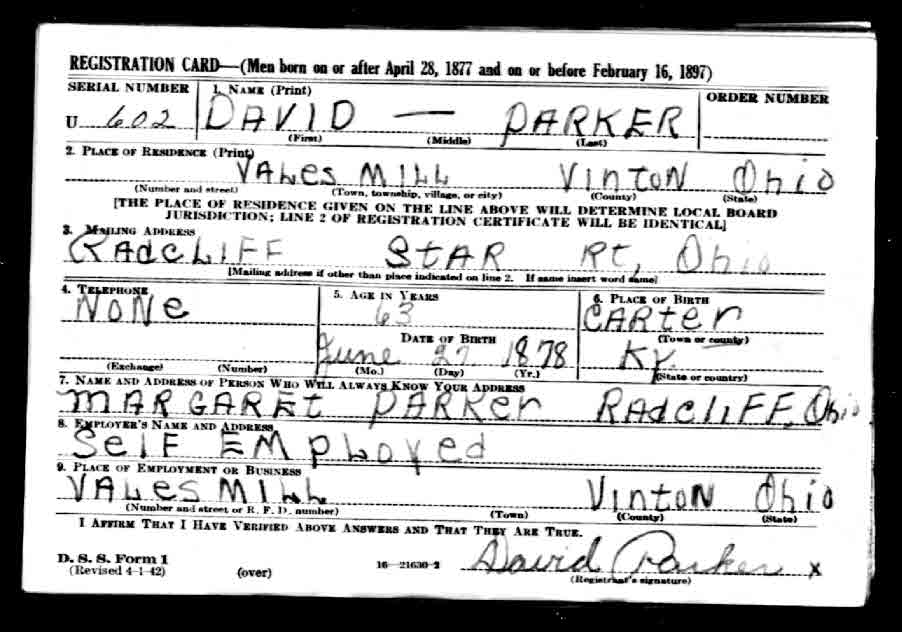 REGISTRATION CARD—(Men born on or after April 28, 1877 and on or before February 16, 1897)
SERIAL NUMBER 1. NAME (Print) ORDER NUMBER
U 602 DAVID — PARKER
(First) (Middle) (Last)
2. PLACE OF RESIDENCE (Print)
VALes MILL VINTON Ohio
(Number and street) (Town, township, village, or city) (County) (State)
[THE PLACE OF RESIDENCE GIVEN ON THE LINE ABOVE WILL DETERMINE LOCAL BOARD
JURISDICTION; LINE 2 OF REGISTRATION CERTIFICATE WILL BE IDENTICAL]
3. MAILING ADDRESS
RAdCLIFF STAR RT, Ohio
[Mailing address if other than place indicated on line 2. If same insert word same]
4. TELEPHONE 5. AGE IN YEARS 6. PLACE OF BIRTH
NoNe 63 CARter
(Town or county)
DATE OF BIRTH
June 27 1878 Ky.
(Exchange) (Number) (Mo.) (Day) (Yr.) (State or country)
7. NAME AND ADDRESS OF PERSON WHO WILL ALWAYS KNOW YOUR ADDRESS
MARGARet PARKer RAdCLIFF, Ohio
8. EMPLOYER'S NAME AND ADDRESS
SelF EMployed
9. PLACE OF EMPLOYMENT OR BUSINESS
VALes MILL VINTON Ohio
(Number and street or R. F. D. number) (Town) (County) (State)
I AFFIRM THAT I HAVE VERIFIED ABOVE ANSWERS AND THAT THEY ARE TRUE.
D. S. S. Form 1
(Revised 4-1-42) (over) 16—21630-2 David Parker x
(Registrant's signature)